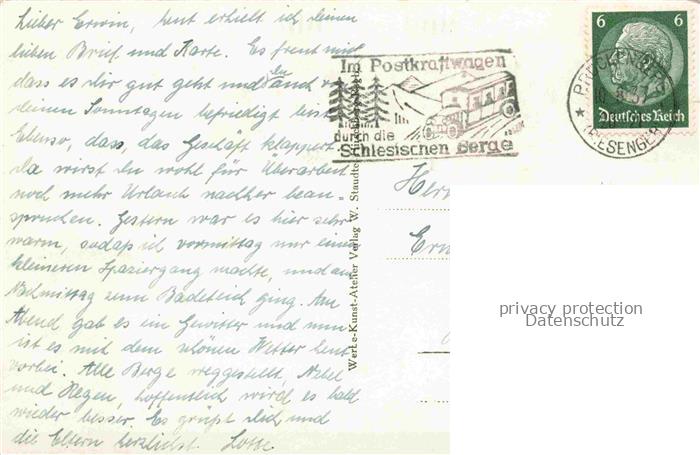 Lieber Erwin, heut erhielt ich deinen
lieben Brief und Karte. Es freut mich
dass es dir gut geht und du auch
deinen Sonntagen befriedigt bist
Ebenso, dass, das Geschäft klappert.
Da wirst du wohl für Überarbeit
noch mehr Urlaub nachher bean-
spruchen. Gestern war es hier sehr
warm, sodaß ich vormittag nur einen
kleineren Spaziergang machte, und am
Nachmittag zum Badeteich ging. Am
Abend gab es ein Gewitter und nun
ist es mit dem schönen Wetter heut
vorbei. Alle Berge weggestellt, Nebel
und Regen, hoffentlich wird es bald
wieder besser. Es grüßt dich und
die Eltern herzlichst Lotte
Im Postkraftwagen
durch die
Schlesischen Berge
6 6
Deutsches Reich
BRÜCKENBERG
(RIESENGEB
Werke-Kunst-Atelier Verlag W. Staudte
Herr
privacy protection
Datenschutz